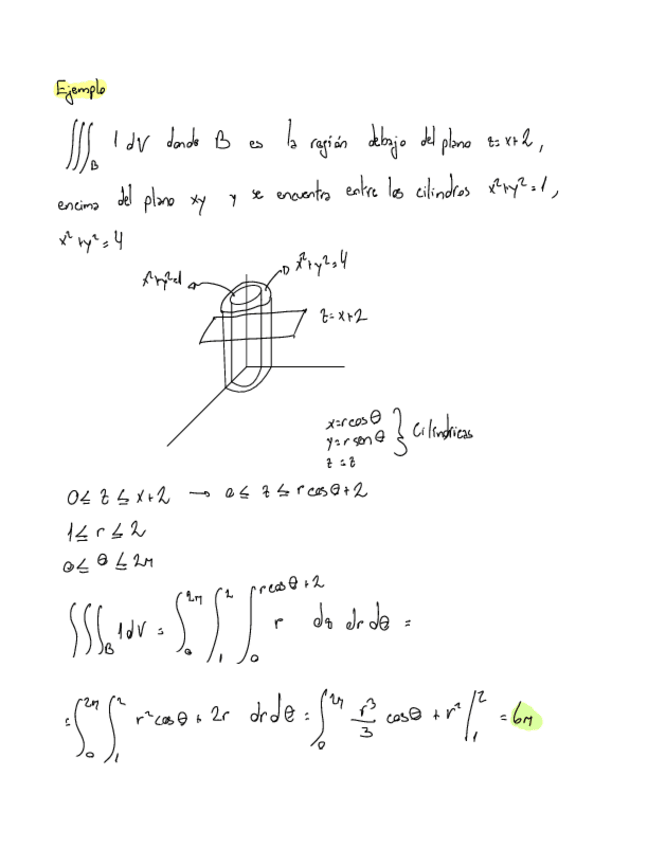 Ejemplo
∭_B 1 dV donde B es la región debajo del plano z = x+2,
encima del plano xy y se encuentra entre los cilindros x²+y²=1,
x²+y²=4
x²+y²=1
x²+y²=4
z=x+2
x=rcosθ
y=r senθ } Cilíndricas
z=z
0≤ z ≤ x+2 → 0≤ z ≤ rcosθ+2
1≤ r ≤ 2
0≤ θ ≤ 2π
∭_B 1 dV = ∫_0^{2π} ∫_1^2 ∫_0^{rcosθ+2} r dz dr dθ =
= ∫_0^{2π} ∫_1^2 r²cosθ + 2r dr dθ = ∫_0^{2π} r³/3 cosθ + r² |_1^2 = 6π